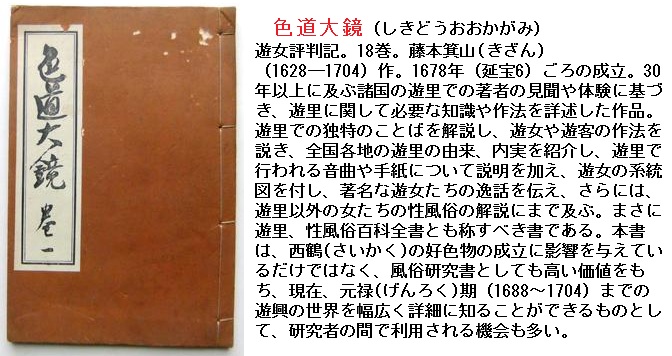 色道大鏡 巻一
色道大鏡 (しきどうおおかがみ)
遊女評判記。18巻。藤本箕山(きざん)
(1628―1704) 作。1678年 (延宝6) ごろの成立。30
年以上に及ぶ諸国の遊里での著者の見聞や体験に基づ
き、遊里に関して必要な知識や作法を詳述した作品。
遊里での独特のことばを解説し、遊女や遊客の作法を
説き、全国各地の遊里の由来、内実を紹介し、遊里で
行われる音曲や手紙について説明を加え、遊女の系統
図を付し、著名な遊女たちの逸話を伝え、さらには、
遊里以外の女たちの性風俗の解説にまで及ぶ。まさに
遊里、性風俗百科全書とも称すべき書である。本書
は、西鶴(さいかく)の好色物の成立に影響を与えてい
るだけではなく、風俗研究書としても高い価値をも
ち、現在、元禄(げんろく)期 (1688～1704) までの
遊興の世界を幅広く詳細に知ることができるものとし
て、研究者の間で利用される機会も多い。